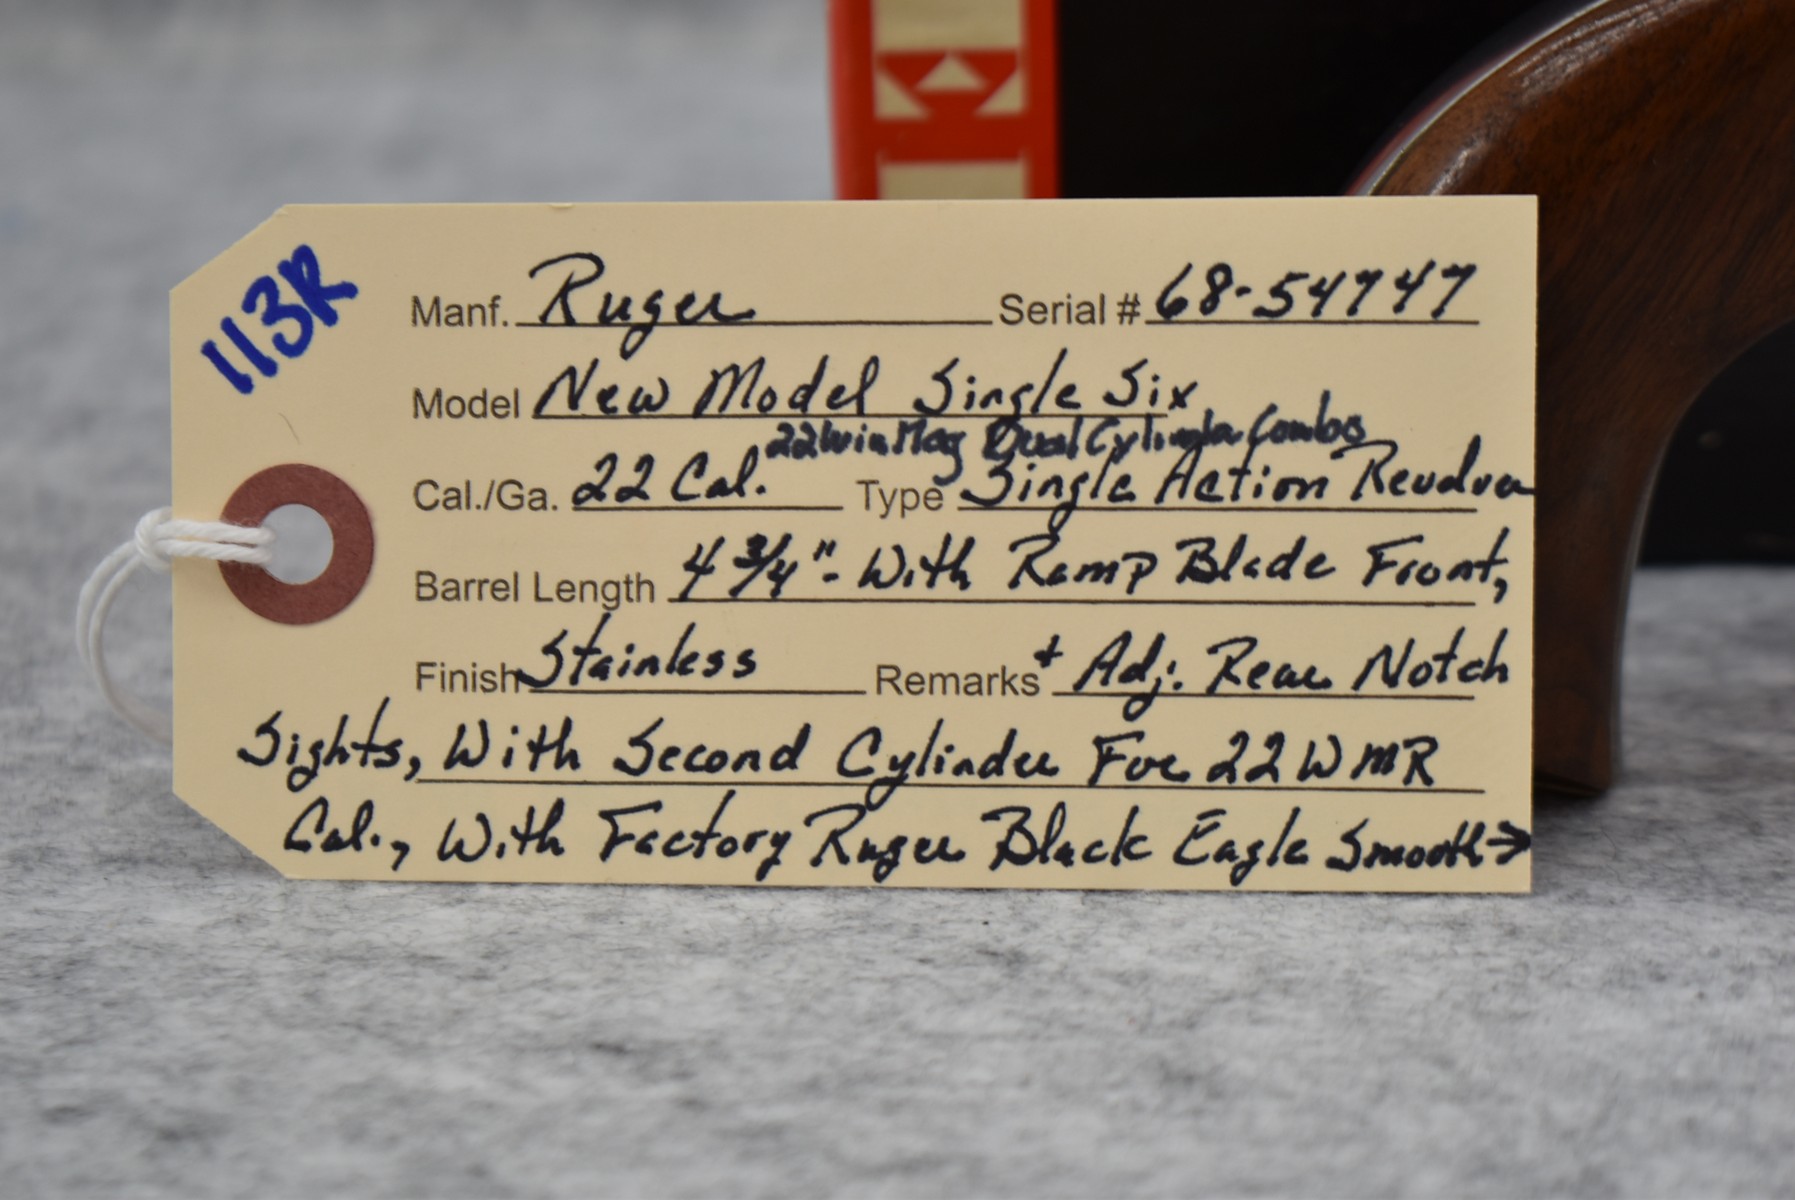 113R
Manf. Ruger Serial # 68-54747
Model New Model Single Six
22 Win Mag Dual Cylinder Combo
Cal./Ga. 22 Cal. Type Single Action Revolver
Barrel Length 4 3/4" - With Ramp Blade Front,
Finish Stainless Remarks + Adj. Rear Notch
Sights, With Second Cylinder For 22 WMR
Cal., With Factory Ruger Black Eagle Smooth →